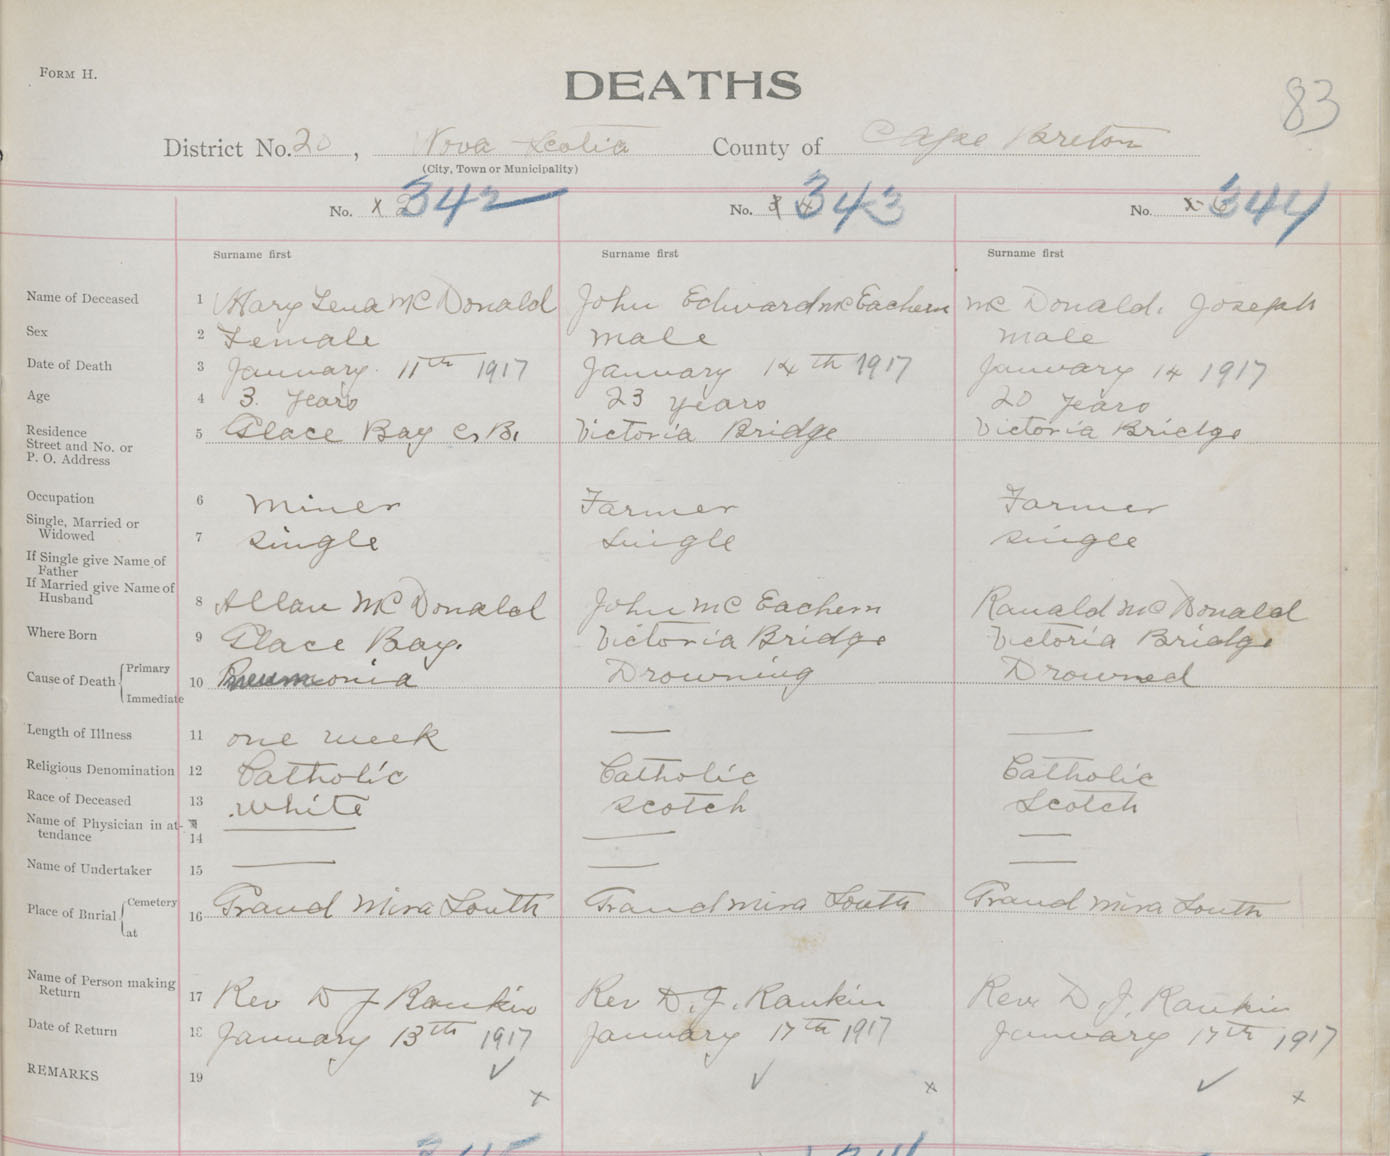 FORM H.
DEATHS
83
District No. 20, Nova Scotia County of Cape Breton
(City, Town or Municipality)
No. 342 No. 343 No. 344
Surname first Surname first Surname first
Name of Deceased 1 Mary Lena McDonald John Edward McEachern McDonald, Joseph
Sex 2 Female male male
Date of Death 3 January 11th 1917 January 14th 1917 January 14 1917
Age 4 3 years 23 years 20 years
Residence
Street and No. or
P. O. Address 5 Glace Bay C. B. Victoria Bridge Victoria Bridge
Occupation 6 Miner Farmer Farmer
Single, Married or
Widowed 7 single Single single
If Single give Name of
Father
If Married give Name of
Husband 8 Allan McDonald John McEachern Ranald McDonald
Where Born 9 Glace Bay. Victoria Bridge Victoria Bridge
Cause of Death Primary
Immediate 10 Pneumonia Drowning Drowned
Length of Illness 11 one week — —
Religious Denomination 12 Catholic Catholic Catholic
Race of Deceased 13 white scotch Scotch
Name of Physician in at-
tendance 14 — — —
Name of Undertaker 15 — — —
Place of Burial Cemetery
at 16 Grand Mira South Grand Mira South Grand Mira South
Name of Person making
Return 17 Rev D J Rankin Rev D. J. Rankin Rev. D. J. Rankin
Date of Return 18 January 13th 1917 January 17th 1917 January 17th 1917
REMARKS 19 ✓ x ✓ x ✓ x